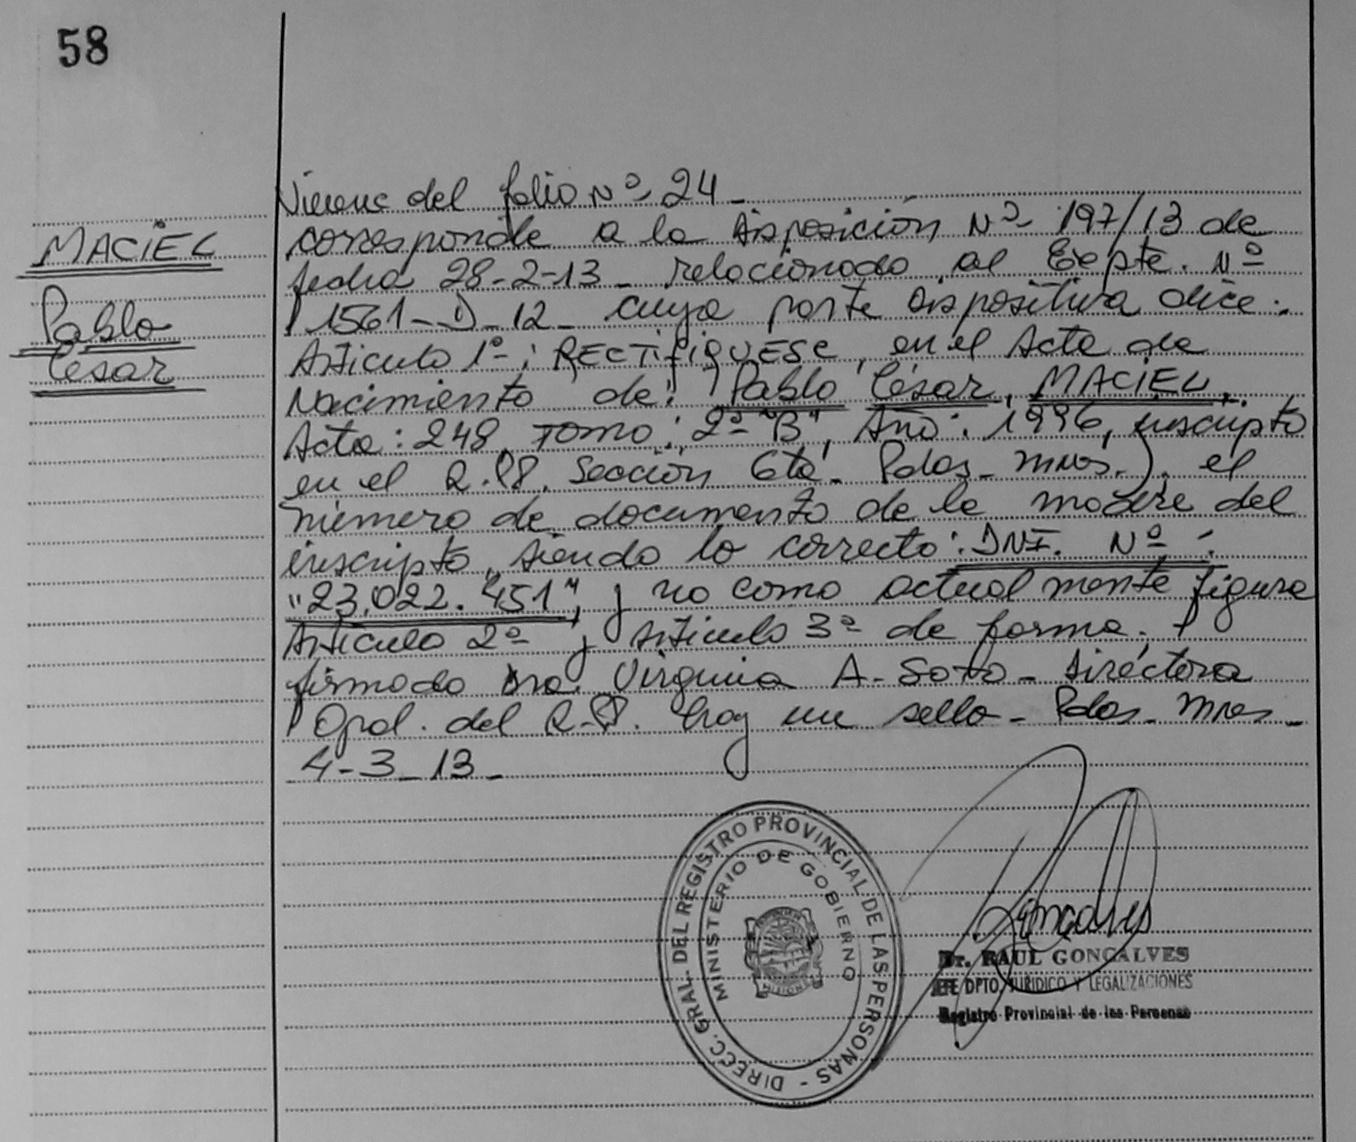 58
MACIEL
Pablo
César
Viene del folio Nº 24_
corresponde a la Disposición Nº 197/13 de
fecha 28-2-13_ relacionado al Expte. Nº
1561_D_12_ cuya parte dispositiva dice:
Artículo 1º: RECTIFIQUESE, en el Acta de
Nacimiento de: Pablo César MACIEL,
Acta: 248, Tomo: 2º "B", Año: 1996, inscripto
en el R.P. Sección 6ta. Pdas_Mnes.), el
número de documento de la madre del
inscripto, siendo lo correcto: DNI. Nº:
"23.022.451", y no como actualmente figura
Artículo 2º y Artículo 3º de forma.
firmado Dra. Virginia A. Soto_ Directora
Gral. del R.P. hay un sello_ Pdas_Mnes_
4-3_13_
DIRECC. GRAL. DEL REGISTRO PROVINCIAL DE LAS PERSONAS -
MINISTERIO DE GOBIERNO
MISIONES
Goncalves
Dr. RAUL GONCALVES
JEFE DPTO. JURIDICO Y LEGALIZACIONES
Registro Provincial de las Personas